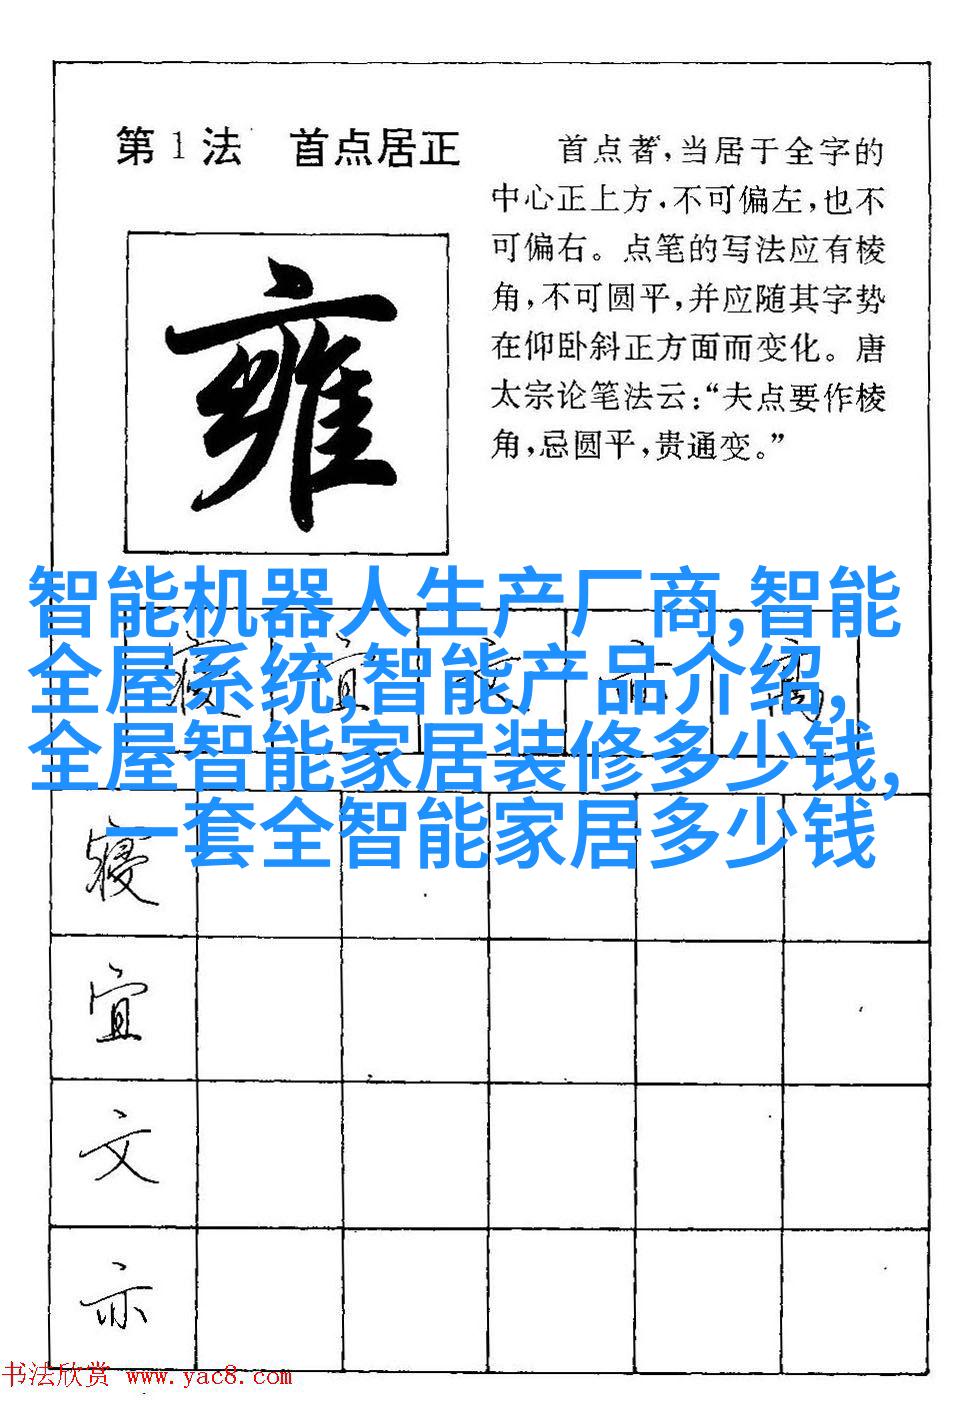 第1法 首点居正
首点者,当居于全字的
中心正上方,不可偏左,也不
可偏右。点笔的写法应有棱
角,不可圆平,并应随其字势
在仰卧斜正方面而变化。唐
太宗论笔法云:“夫点要作棱
角,忌圆平,贵通变。”
雍
智能机器人生产厂商,智能
全屋系统,智能产品介绍,
全屋智能家居装修多少钱,
一套全智能家居多少钱
寝 宜 文 亦 高
寝
宜
文
亦
书法欣赏 www.yac8.com